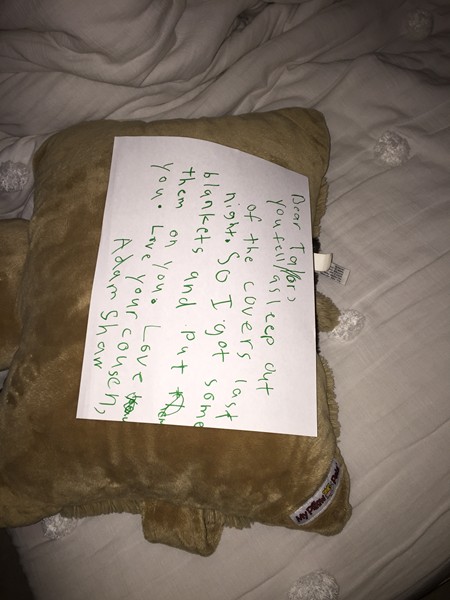 Dear Taylor,
you fell asleep out
of the covers last
night. So I got some
blankets and put
them on you. Love
you. Love your cousen,
Adam Shaw
My Pillow Pets